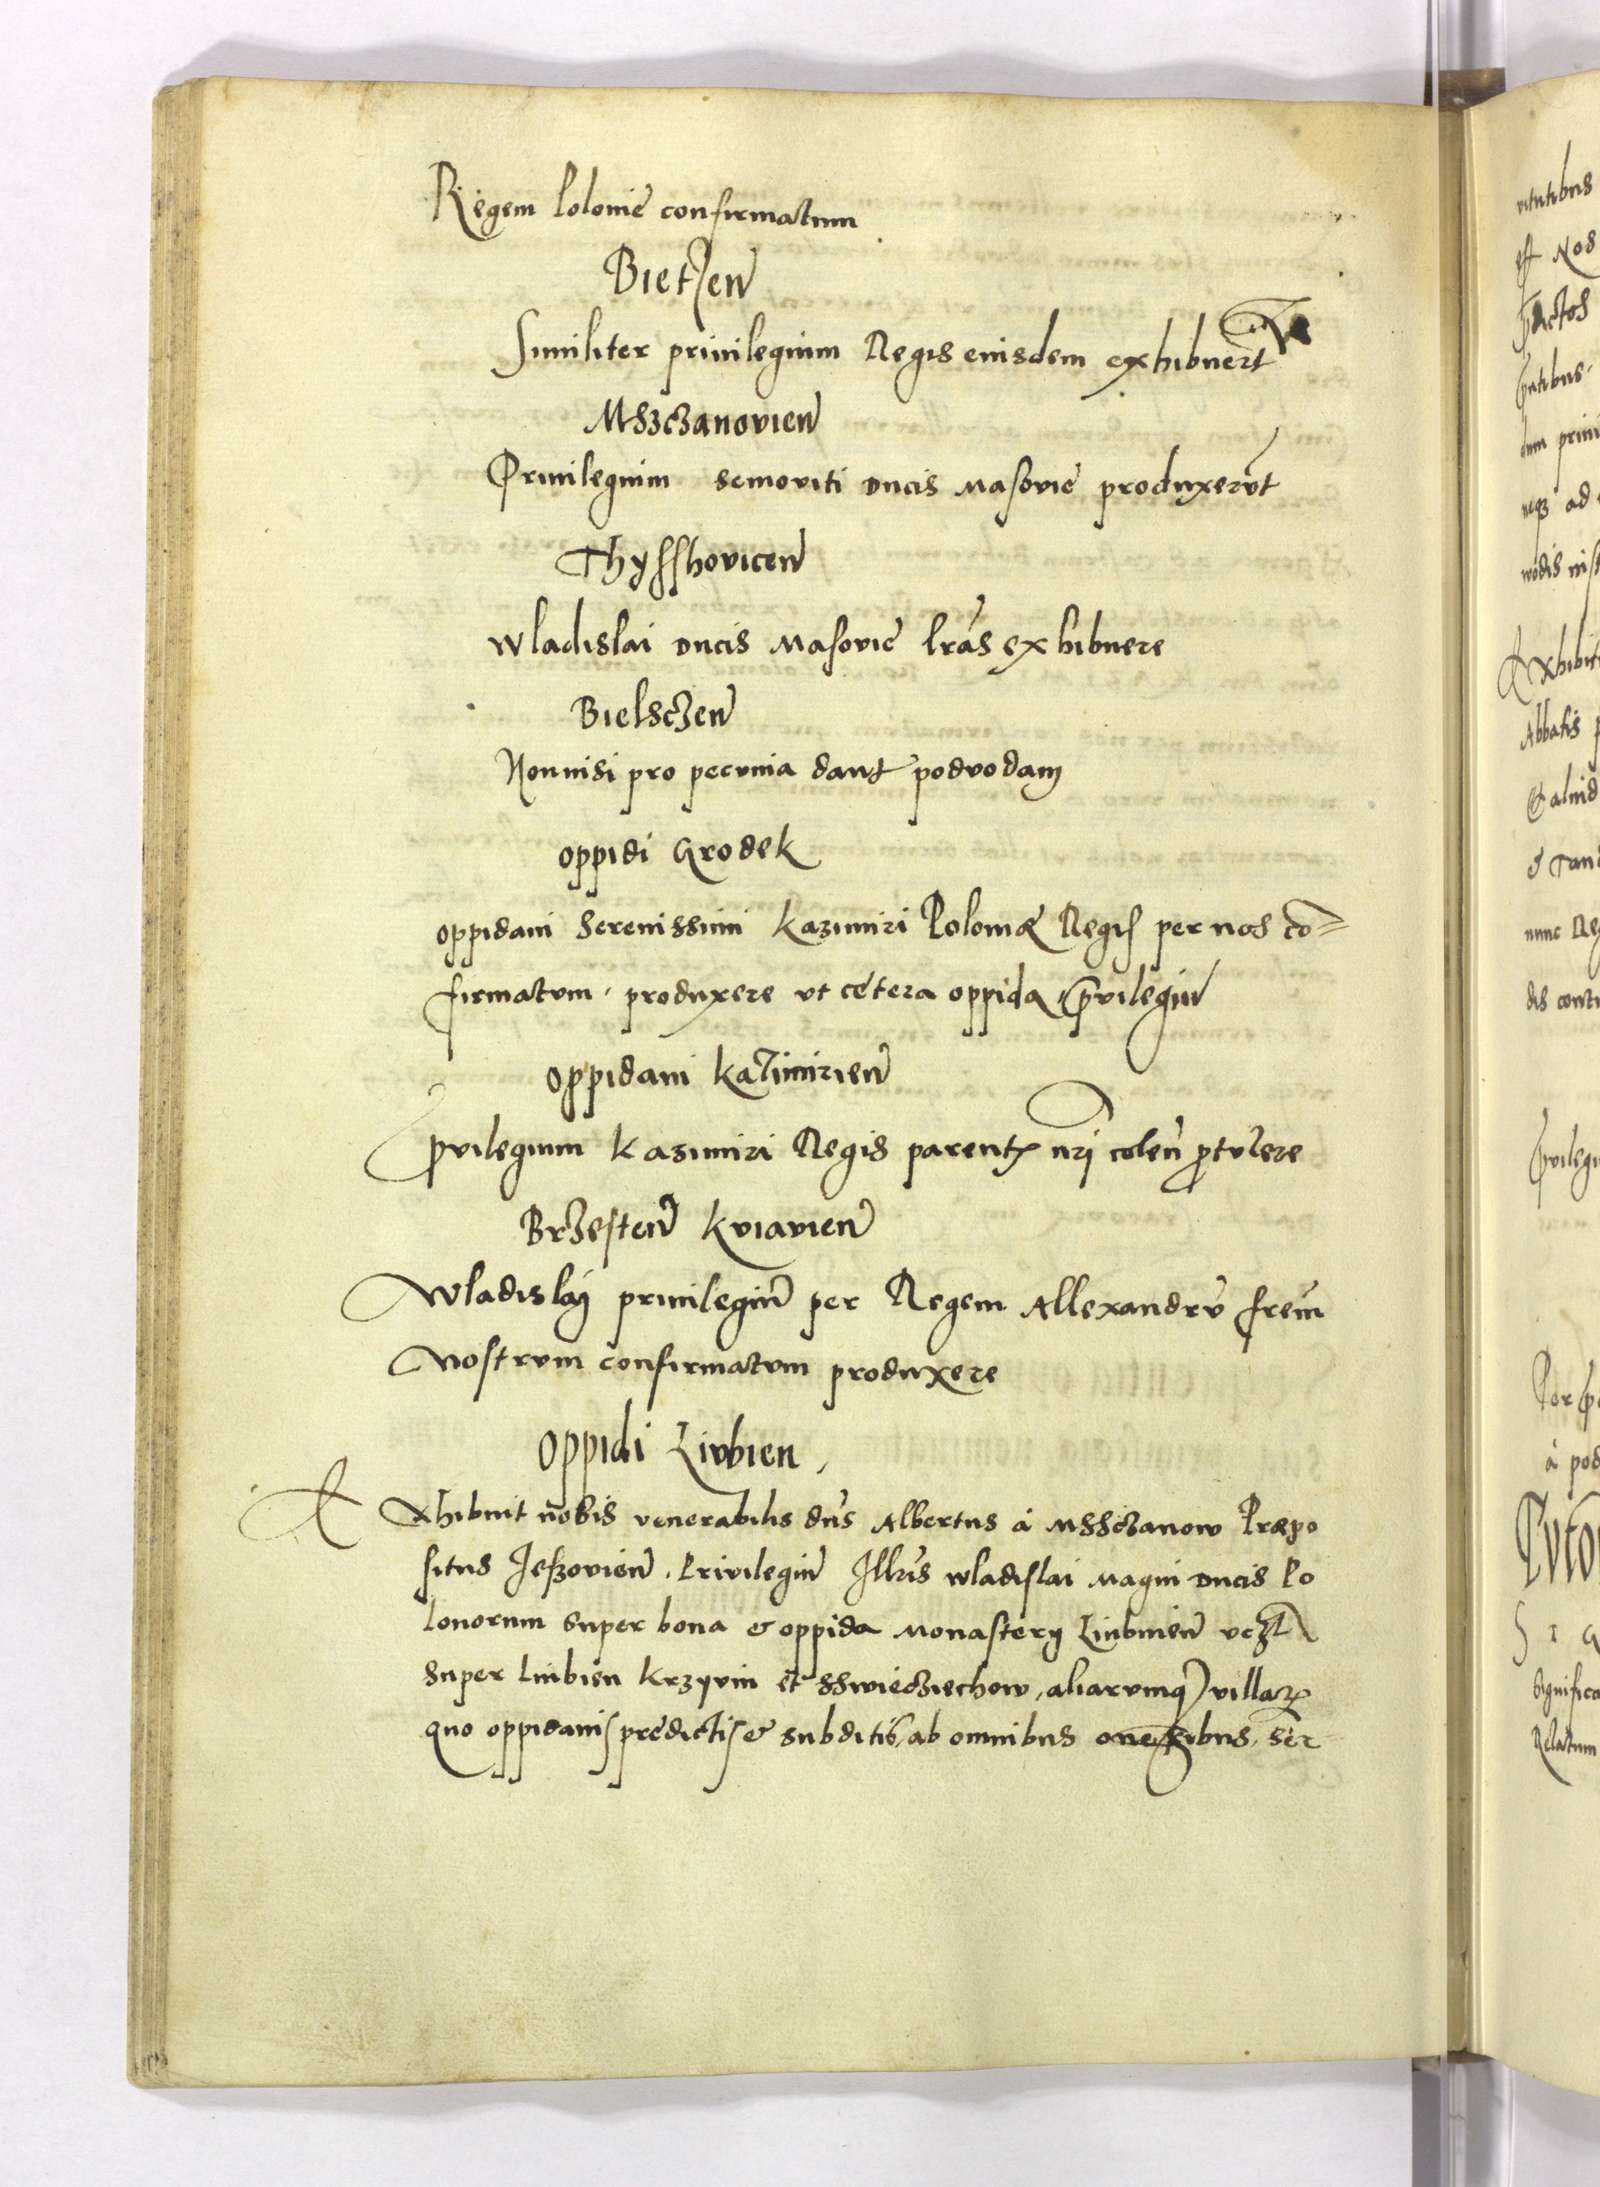 Regem Polonie confirmatum
Bietzen̄
Similiter privilegium Regis eiusdem exhibuert̄
Mszczanovien̄
Privilegium Semoviti Ducis Masovie produxerūt
Thyssovicen̄
Wladislai Ducis Masovie lr̄as exhibuere
Bielsczen̄
Non nisi pro pecunia dant podvodam
Oppidi Grodek
Oppidani Serenissimi Kazimiri Poloniæ Regis per nos cō=
firmatvm. produxere vt cetera oppida privilegiū
Oppidani Kazimirien̄
Privilegium Kasimiri Regis parentꝭ nr̄j colen̄ protulere
Brzesten̄ Kviavien̄
Wladislaj privilegiū per Regem Allexandrū fr̄em
Nostrvm confirmatvm produxere
Oppidi Lvbien,
Exhibuit nobis venerabilis dn̄s Albertus à Msschzanow Præpo
situs Jeszovien̄. Privilegiū Illr̄is Wladislai Magni Ducis Po
lonorum super bona & oppida Monastery Lubinien̄ vcꝫ
Super Lubien Krzyvin et Sswieczechow, aliarvmqꝫ villarꝝ
quo oppidanis predictis & subditis, ab omnibus oneribus, ser
vitutibus
est Nos
pactos
dum privi
neqꝫ ad
Exhibit
Abbatis p
& aliud
& tan
nunc Reg
dis cont
Privilegi
à pod
Significa
Relatum